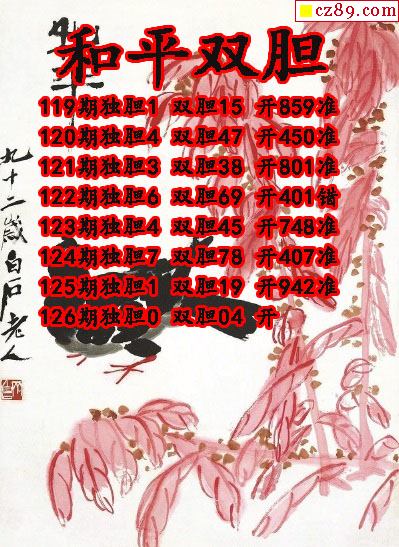 cz89.com
和平双胆
119期独胆1 双胆15 开859准
120期独胆4 双胆47 开450准
121期独胆3 双胆38 开801准
122期独胆6 双胆69 开401错
123期独胆4 双胆45 开748准
124期独胆7 双胆78 开407准
125期独胆1 双胆19 开942准
126期独胆0 双胆04 开
九十二岁白石老人